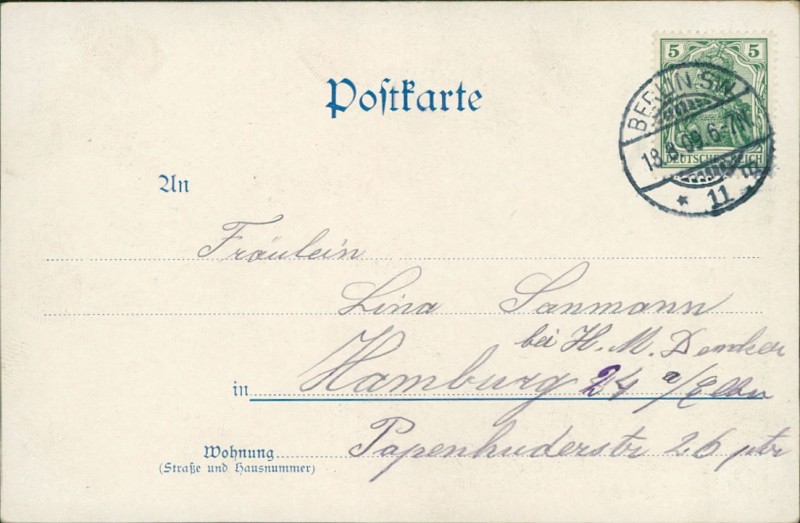 Postkarte
5 5
DEUTSCHES REICH
BERLIN. SW
11
An
Fräulein
Lina Sanmann
bei H. M. Dencker
in Hamburg 24 a/Elbe
Wohnung Papenhuderstr 26 ptr
(Straße und Hausnummer)